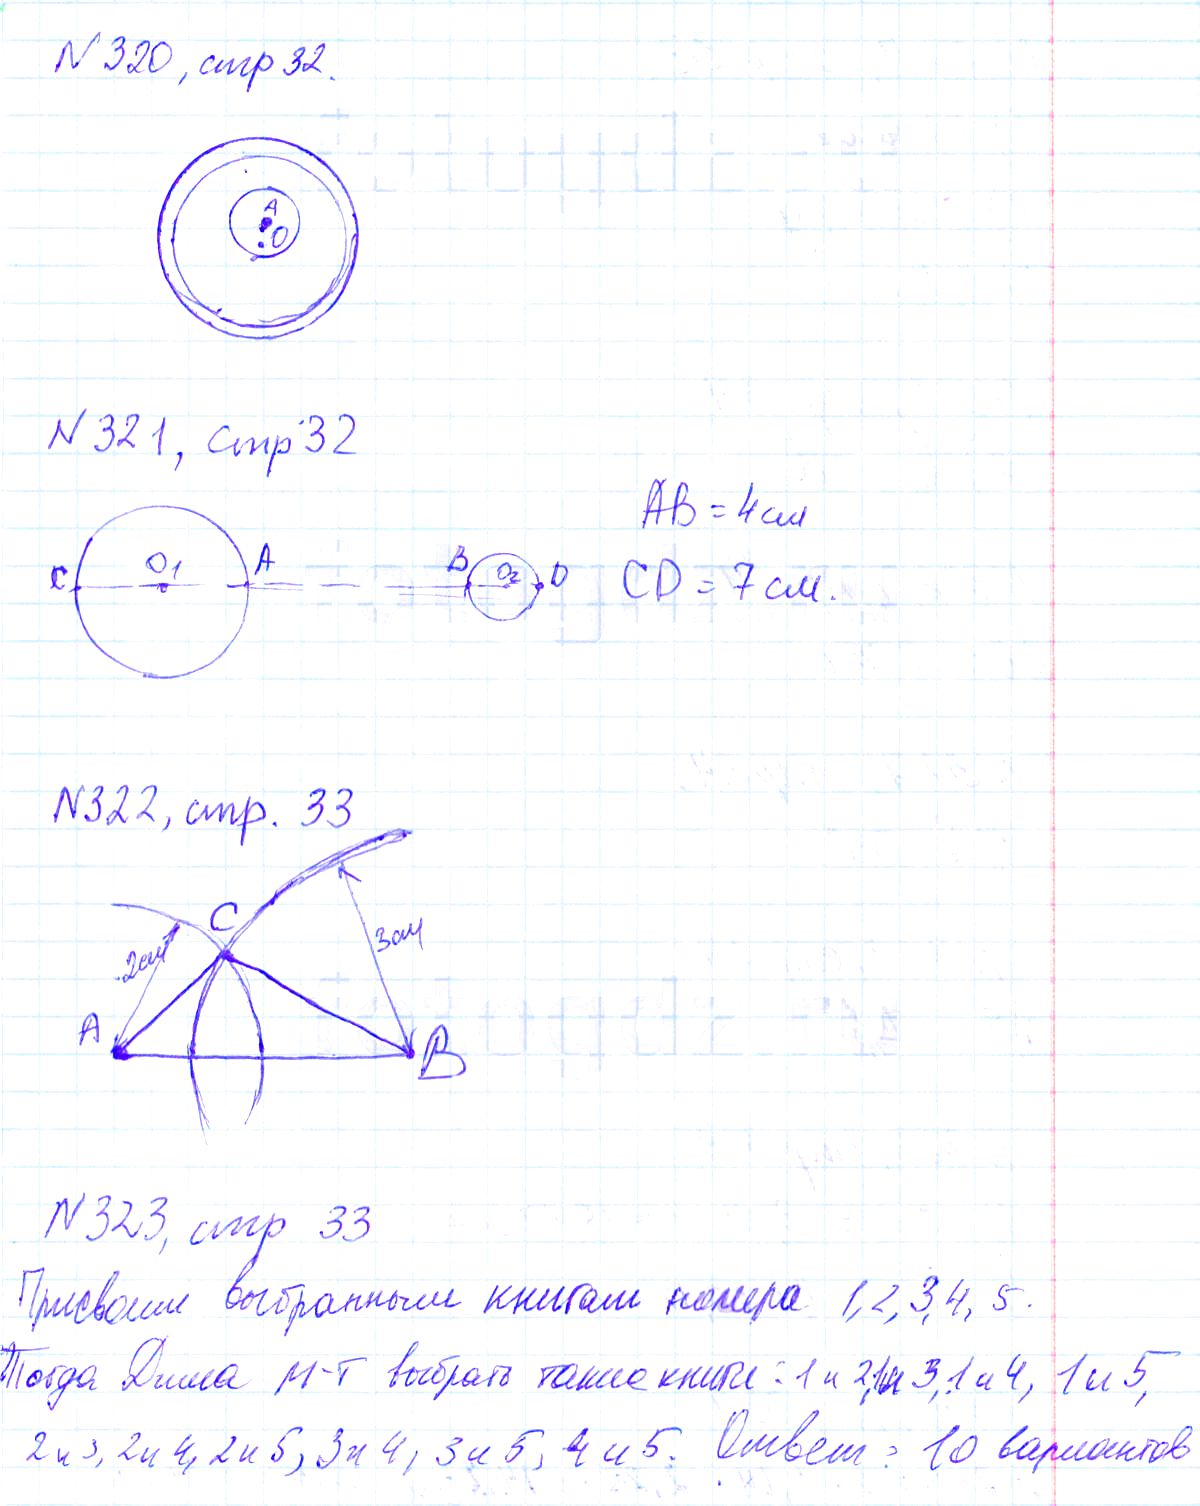 N 320, стр 32.
A
O
N 321, стр 32
AB = 4 см
C O1 A B O2 D CD = 7 см.
N322, стр. 33
C
2см 3см
A B
N323, стр 33
Присвоим выбранным книгам номера 1, 2, 3, 4, 5.
Тогда Дима м-т выбрать такие книги: 1 и 2, 1 и 3, 1 и 4, 1 и 5,
2 и 3, 2 и 4, 2 и 5, 3 и 4, 3 и 5, 4 и 5. Ответ: 10 вариантов